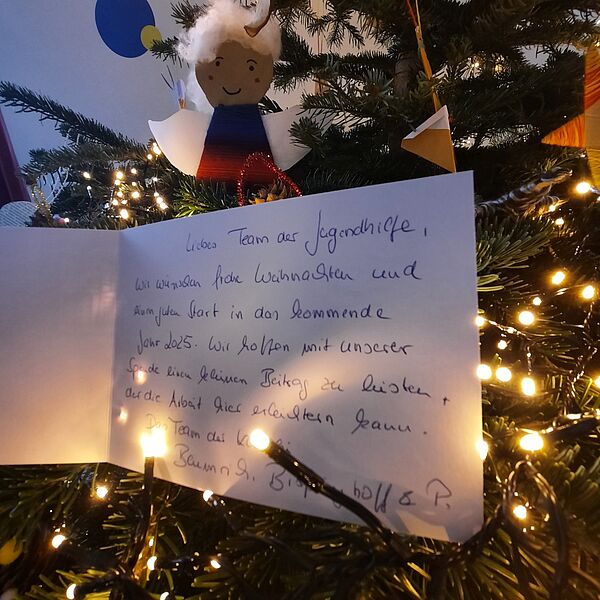 Liebes Team der Jugendhilfe,
wir wünschen frohe Weihnachten und
einen guten Start in das kommende
Jahr 2025. Wir hoffen mit unserer
Spende einen kleinen Beitrag zu leisten,
der die Arbeit hier erleichtern kann.
Das Team der
& P.